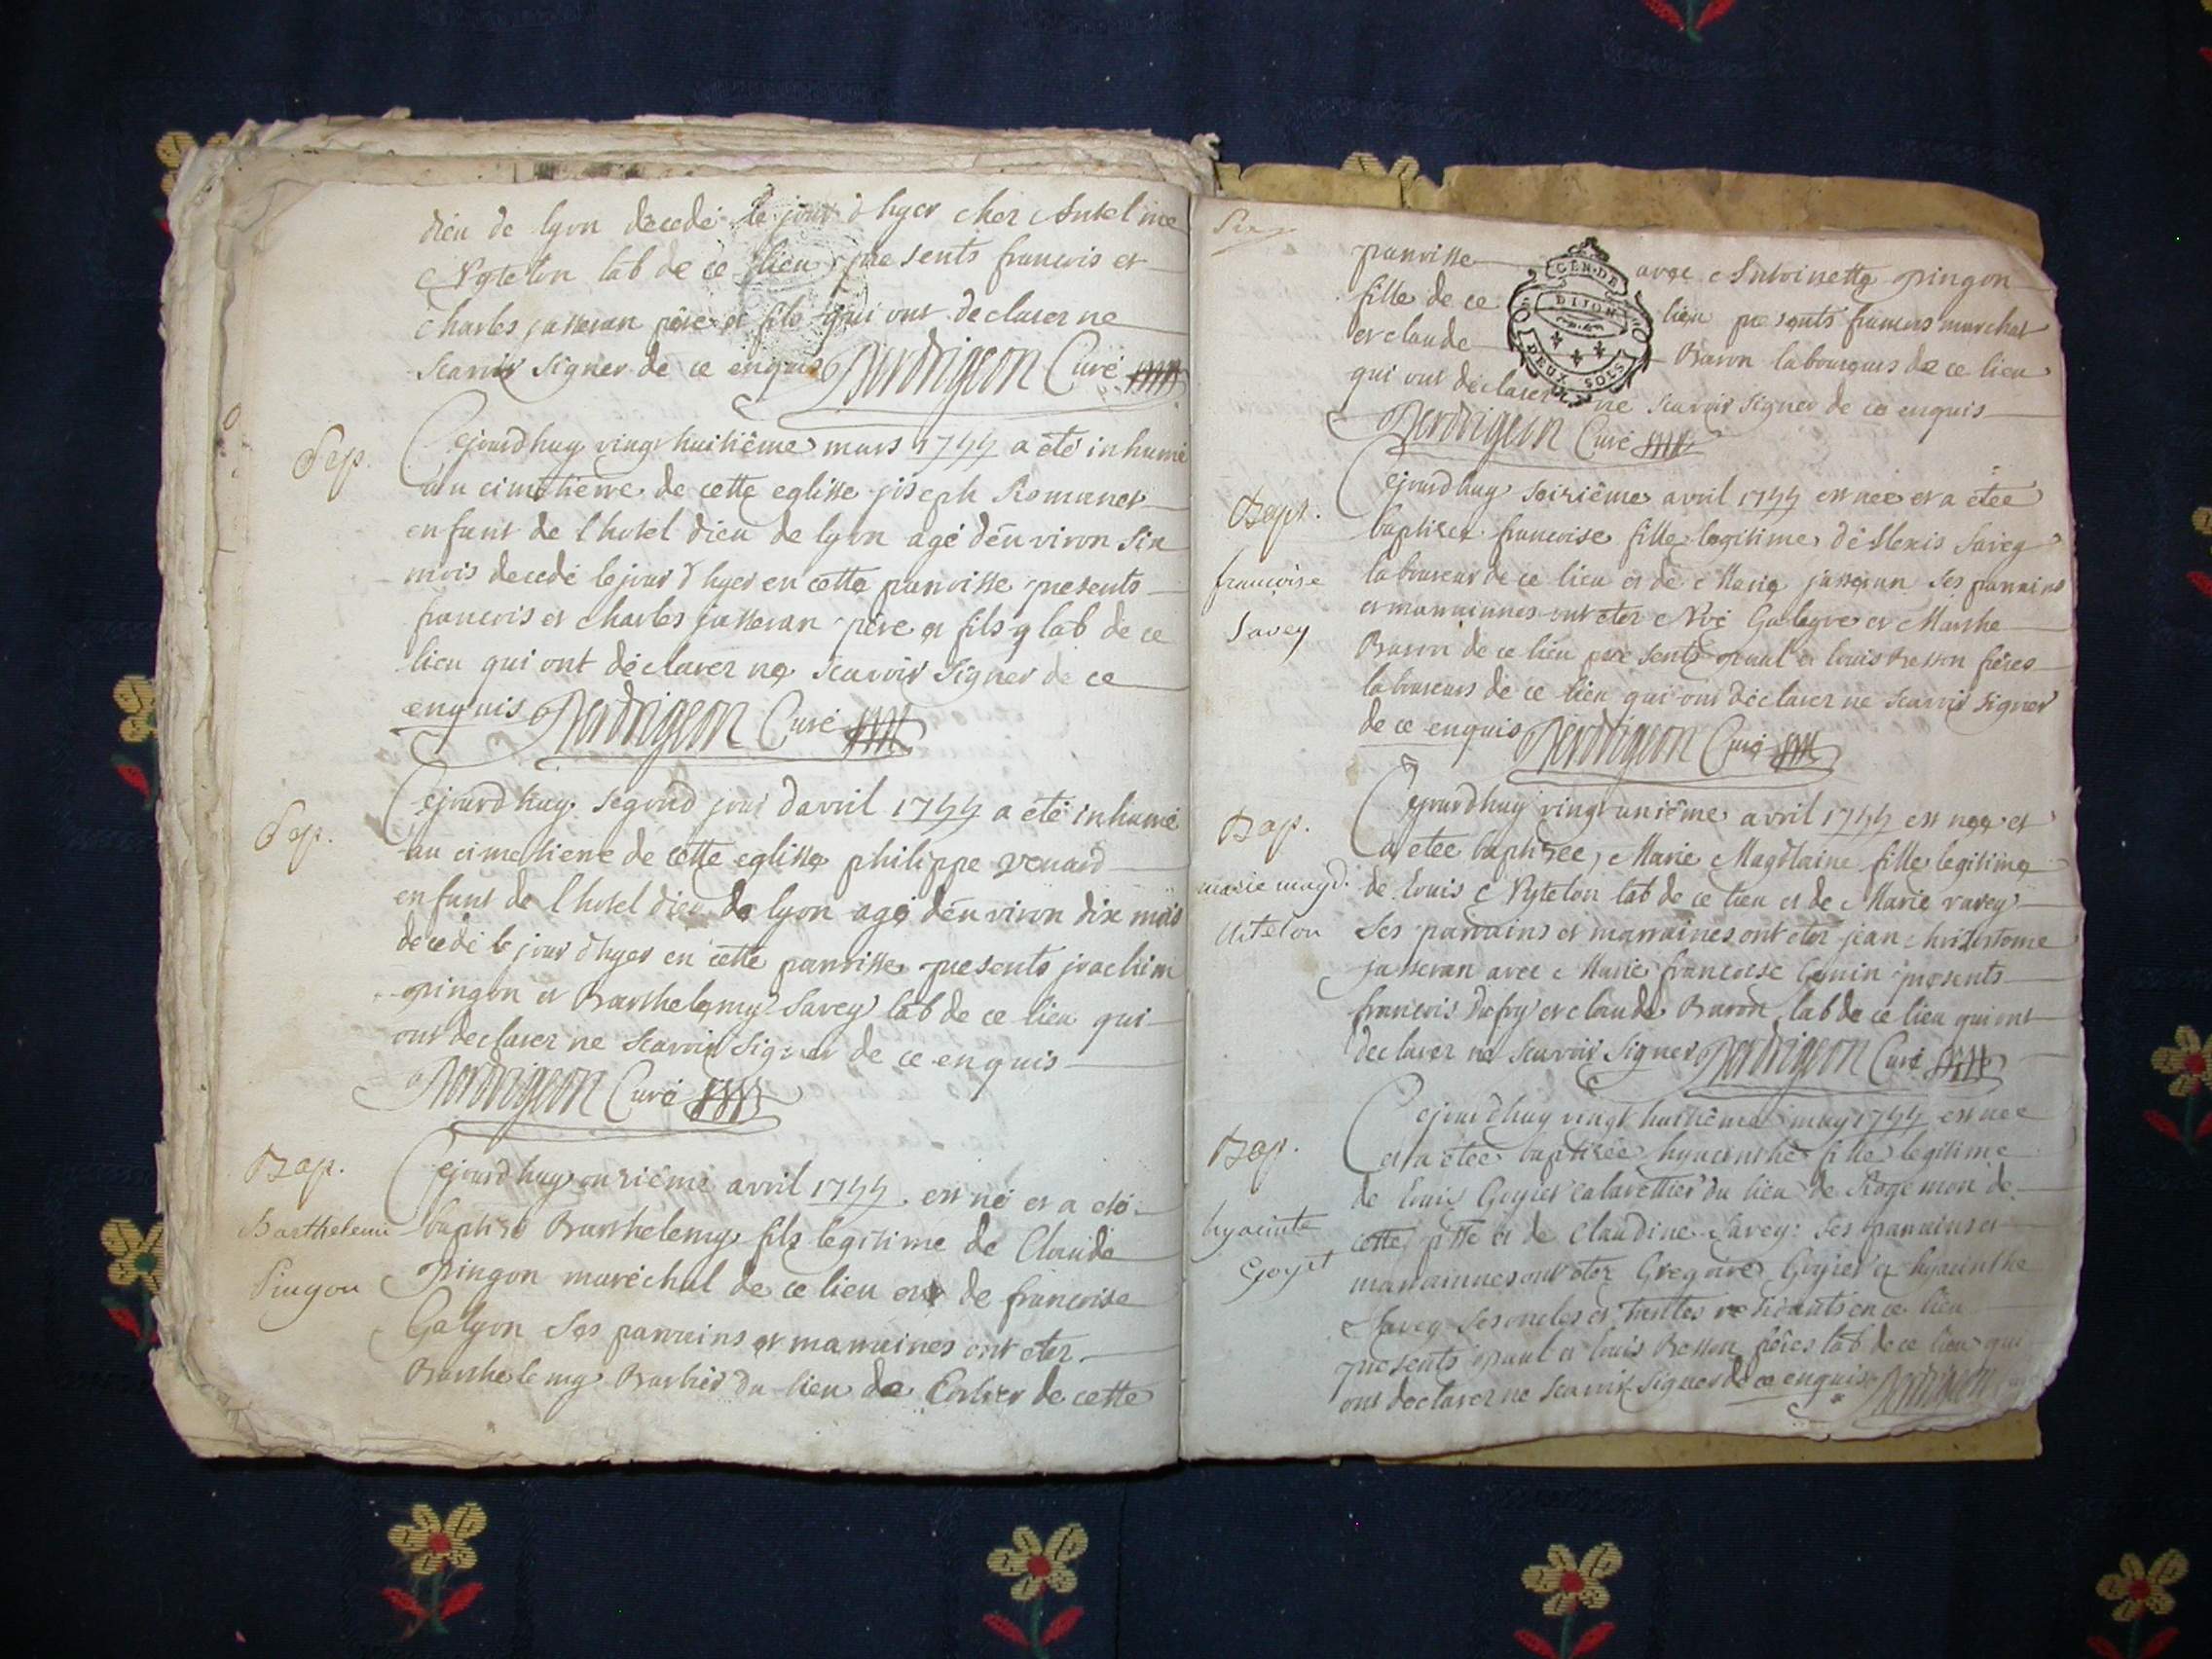 dieu de lyon décedé le jour d'hyer chez Anselme
Nyteton lab de ce lieu, presents francois et
charles jasseran père et fils qui ont declarez ne
scavoir signer de ce enquis Perdrigeon Curé
Sep.
Cejourdhuy vingt huitiême mars 1744 a été inhumé
au cimetierre de cette eglisse joseph Romanet
enfant de l'hotel dieu de lyon agé d'environ six
mois decedé le jour d'hyer en cette parroisse presents
francois et charles jasseran père et fils lab de ce
lieu qui ont déclarez ne scavoir signer de ce
enquis Perdrigeon Curé
Sep.
Cejourdhuy segond jour d'avril 1744 a été inhumé
au cimetierre de cette eglisse philippe venard
enfant de l'hotel dieu de lyon agé d'environ dix mois
décedé le jour d'hyer en cette parroisse presents joachim
pingon et Barthelemy Savey lab de ce lieu qui
ont declarez ne scavoir signer de ce enquis
Perdrigeon Curé
Bap.
Barthelemi
Pingon
Cejourdhuy onziême avril 1744 est né et a eté
baptisé Barthelemy fils legitime de Claude
Pingon maréchal de ce lieu et de francoise
Galyon Ses parrains et marraines ont etez
Barthelemy Barbier du lieu de Corlier de cette
Six
parroisse avec Antoinette pingon
fille de ce lieu presents francois marchat
et claude Baron laboureurs de ce lieu
qui ont déclarez ne scavoir signer de ce enquis
GEN. DE
DIJON
DEUX SOLS
Perdrigeon Curé
Bapt.
francoise
Savey
Cejourdhuy seiziême avril 1744 est née et a étée
baptizée francoise fille legitime d'Alexis Savey
laboureur de ce lieu et de Marie jasseran Ses parrains
et marrainnes ont etez Noé Galeyre et Marthe
Baron de ce lieu presents paul et louis Besson frêres
laboureurs de ce lieu qui ont déclarez ne scavoir signer
de ce enquis Perdrigeon Curé
Bap.
marie magd.
Niteton
Cejourdhuy vingt uniême avril 1744 est née et
a etée baptizée, Marie Magdelaine fille legitime
de Louis Nyteton lab de ce lieu et de Marie varey
Ses parrains et marraines ont etez jean chrizostome
jasseran avec Marie francoise presents
francois Dufoy et claude Baron lab de ce lieu qui ont
declarez ne scavoir signer Perdrigeon Curé
Bap.
hyacinte
Goyet
Cejourdhuy vingt huitiême may 1744 est née
et a etée baptizée hyacinthe fille legitime
de louis Goyiet cabarettier du lieu de Rogemon de
cette psse et de Claudine Savey: Ses parrains et
marrainnes ont etez Gregoire Goyiet et hyacinthe
Savey ses oncles et tantes residants en ce lieu
presents paul et louis Besson frêres lab de ce lieu qui
ont declarez ne scavoir signer de ce enquis Perdrigeon